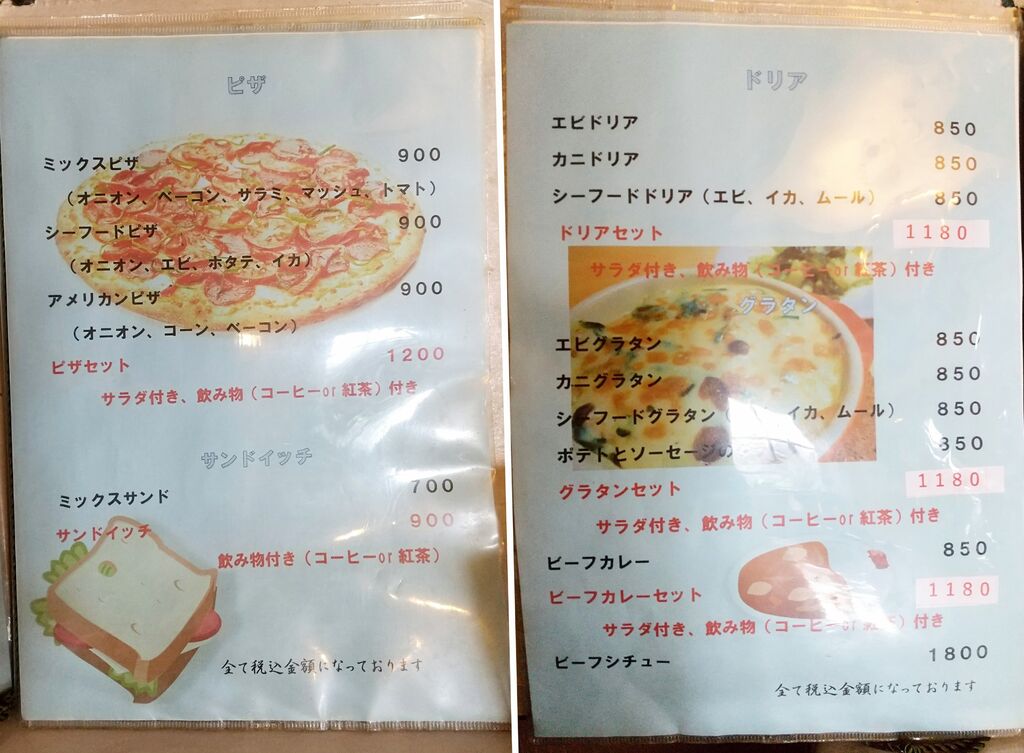 ピザ
ミックスピザ 900
(オニオン、ベーコン、サラミ、マッシュ、トマト)
シーフードピザ 900
(オニオン、エビ、ホタテ、イカ)
アメリカンピザ 900
(オニオン、コーン、ベーコン)
ピザセット 1200
サラダ付き、飲み物(コーヒーor紅茶)付き
サンドイッチ
ミックスサンド 700
サンドイッチ 900
飲み物付き(コーヒーor紅茶)
全て税込金額になっております
ドリア
エビドリア 850
カニドリア 850
シーフードドリア(エビ、イカ、ムール) 850
ドリアセット 1180
サラダ付き、飲み物(コーヒーor紅茶)付き
グラタン
エビグラタン 850
カニグラタン 850
シーフードグラタン( イカ、ムール) 850
ポテトとソーセージの 850
グラタンセット 1180
サラダ付き、飲み物(コーヒーor紅茶)付き
ビーフカレー 850
ビーフカレーセット 1180
サラダ付き、飲み物(コーヒーor紅茶)付き
ビーフシチュー 1800
全て税込金額になっております